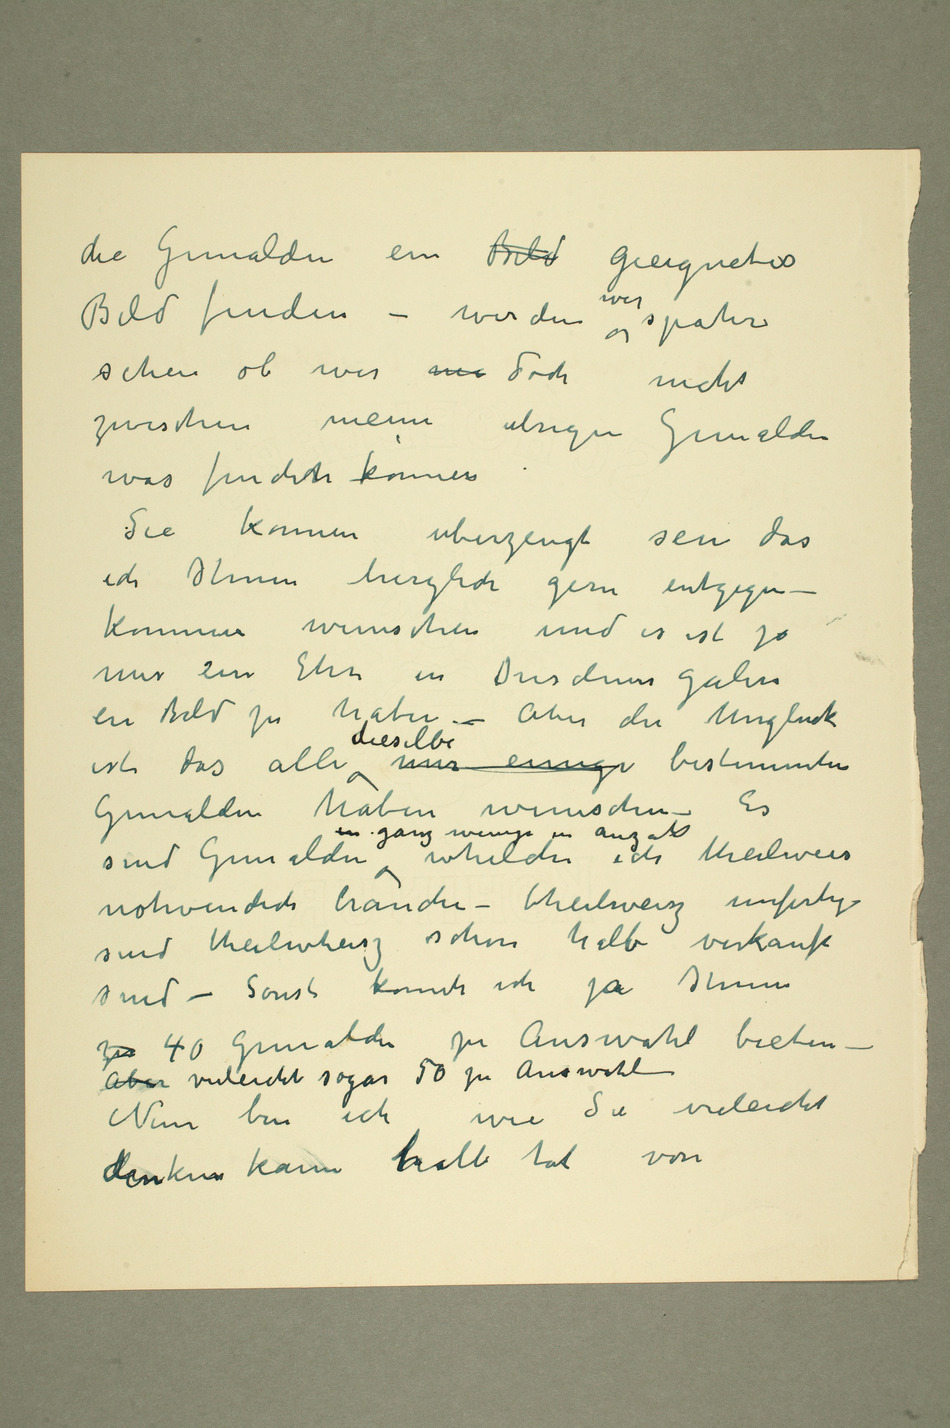 die Gemälden ein Bild geeignetes
Bild finden – werden wir später
sehen ob wir ni doch nicht
zwischen meine ubrigen Gemälden
was finden können
Sie konnen uberzeugt sein das
ich Ihnen herzlich gern entgegen—
kommen wünschen und es ist ja
mir ein Ehre in Dresdener galeri
ein Bild zu haben – Aber die Unglück
ist das alle dieselbe nur einige bestimmten
Gemälden haben wünschen – Es
sind Gemälden in ganz wenige in anzahl whelche ich theilweis
nothvendich brauche – theilweisz unfertig
sind theilwheisz schon halb verkauft
sind – Sonst konnte ich ja Ihnen
zu 40 Gemälde zu Auswahl bieten—
Aber vieleicht sogar 50 zu Auswahl—
Nun bin ich wie Sie vieleicht
denken kann halb tot von